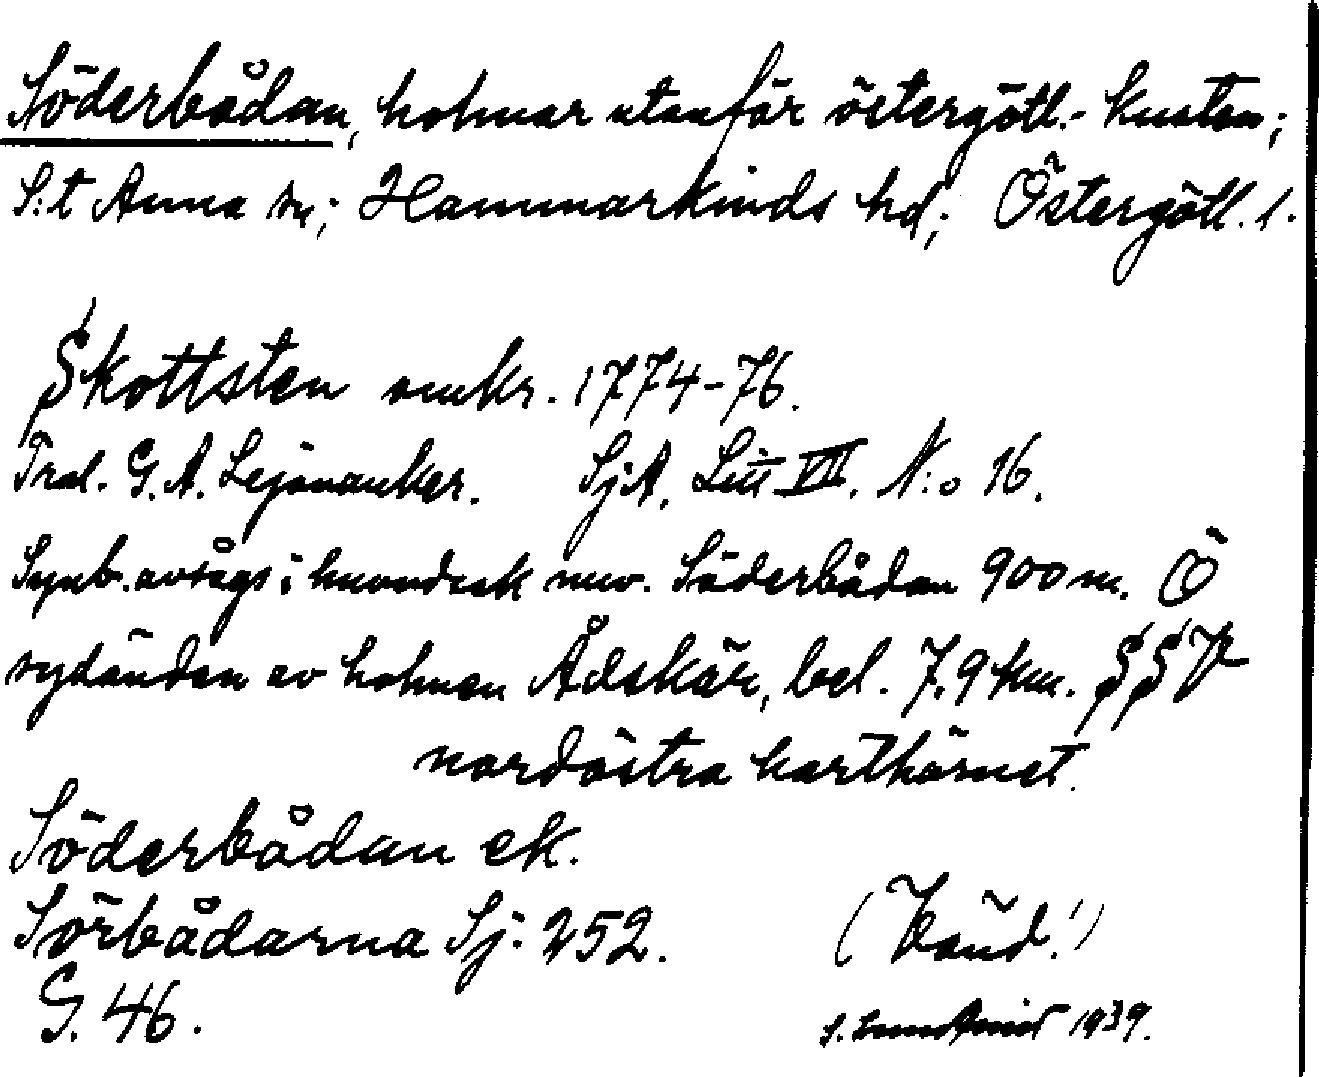 Söderbådan, holmar utanför östergötl.- kusten;
S:t Anna sn; Hammarkinds hd; Östergötl. l.
Skottsten omkr. 1774-76.
Tral. G. A. Lejonanker. SjA. Litt VII. N:o 16.
Symb. avsågs i huvudsak nuv. Söderbådan 900 m. Ö
sydänden av holmen Ådskär, bel. 7.9 km. SSV
nordöstra karthörnet.
Söderbådan ek.
Sörbådarna Sj: 252.
(Känd!)
G. 46.
S. 1939.